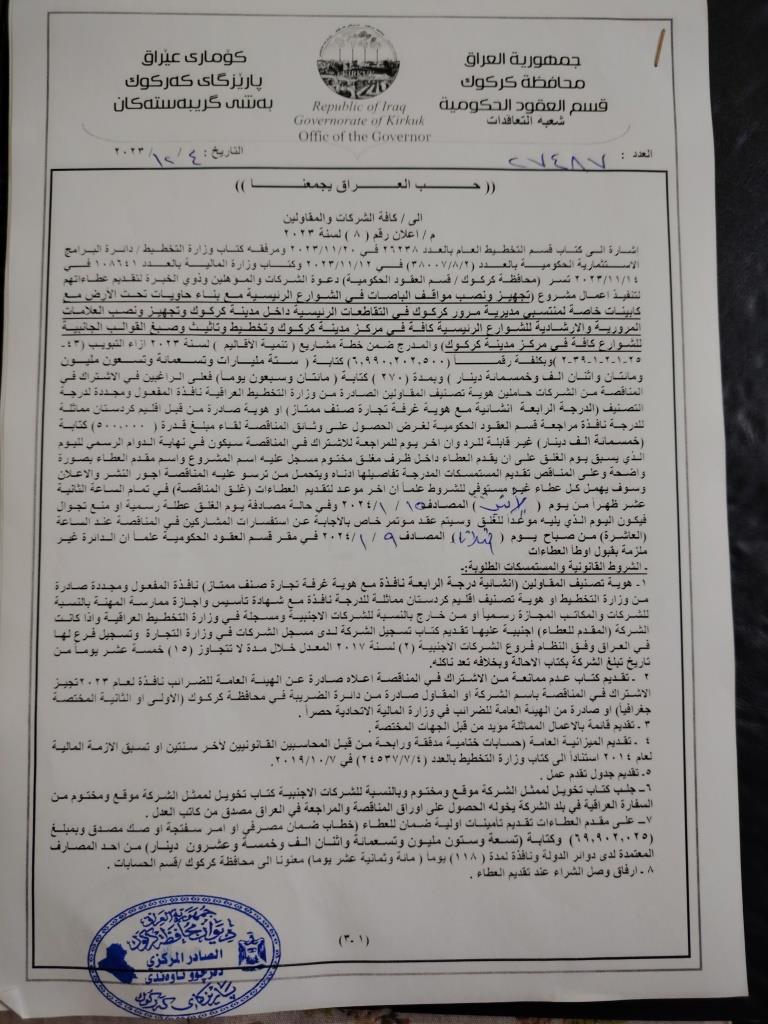 جمهورية العراق
محافظة كركوك
قسم العقود الحكومية
شعبه التعاقدات
Republic of Iraq
Governorate of Kirkuk
Offic of the Governor
كۆماری عێراق
پارێزگای كەركوك
بەشی گرێبەستەكان
العدد : ٢٧٤٨٧
التاريخ : ٤ / ١٢ / ٢٠٢٣
(( حـب العـراق يجمعنـا ))
الى / كافة الشركات والمقاولين
م / اعلان رقم ( ٨ ) لسنة ٢٠٢٣
اشارة الى كتاب قسم التخطيط العام بالعدد ٢٦٢٣٨ في ٢٠٢٣/١١/٢٠ ومرفقه كتاب وزارة التخطيط / دائرة البرامج
الاستثمارية الحكومية بالعدد (٣٨٠٠٧/٨/٢) في ٢٠٢٣/١١/١٢ وكتاب وزارة المالية بالعدد ١٠٨٦٤١ في
٢٠٢٣/١١/١٤ تسر (محافظة كركوك / قسم العقود الحكومية) دعوة الشركات والمؤهلين وذوي الخبرة لتقديم عطاءاتهم
لتنفيذ اعمال مشروع (تجهيز ونصب مواقف الباصات في الشوارع الرئيسية مع بناء حاويات تحت الارض مع
كابينات خاصة لمنتسبي مديرية مرور كركوك في التقاطعات الرئيسية داخل مدينة كركوك وتجهيز ونصب العلامات
المرورية والارشادية للشوارع الرئيسية كافة في مركز مدينة كركوك وتخطيط وتاثيث وصبغ القوالب الجانبية
للشوارع كافة في مركز مدينة كركوك) والمدرج ضمن خطة مشاريع ( تنمية الأقاليم ) لسنة ٢٠٢٣ ازاء التبويب (٤٣-
٢٥-١-٢-١-٣٩-٢) وبكلفة رقمـاً (٦,٩٩٠,٢٠٢,٥٠٠) كتابة ( ستة مليارات وتسعمائة وتسعون مليون
ومائتان واثنان الف وخمسمائة دينار ) وبمدة (٢٧٠) كتابة ( مائتان وسبعون يوماً) فعلى الراغبين في الاشتراك في
المناقصة من الشركات حاملين هوية تصنيف المقاولين الصادرة من وزارة التخطيط العراقية نافذة المفعول ومجددة لدرجة
التصنيف (الدرجة الرابعة انشائية مع هوية غرفة تجارة صنف ممتاز) او هوية صادرة من قبل اقليم كردستان مماثلة
للدرجة نافذة مراجعة قسم العقود الحكومية لغرض الحصول على وثائق المناقصة لقاء مبلغ قدرة (٥٠٠,٠٠٠) كتابة
(خمسمائة الف دينار) غير قابلة للرد وان اخر يوم للمراجعة للاشتراك في المناقصة سيكون في نهاية الدوام الرسمي لليوم
الذي يسبق يوم الغلق على ان يقدم العطاء داخل ظرف مغلق مختوم مسجل عليه اسم المشروع واسم مقدم العطاء بصورة
واضحة وعلى المناقص تقديم المستمسكات المدرجة تفاصيلها ادناه ويتحمل من ترسو عليه المناقصة اجور النشر والاعلان
وسوف يهمل كل عطاء غير مستوفي للشروط علماً ان اخر موعد لتقديم العطاءات (غلق المناقصة) في تمام الساعة الثانية
عشر ظهراً من يوم ( الاثنين ) المصادف ١٥ / ١ / ٢٠٢٤ وفي حالة مصادفة يوم الغلق عطلة رسمية او منع تجوال
فيكون اليوم الذي يليه موعداً للغلق وسيتم عقد مؤتمر خاص بالاجابة عن استفسارات المشاركين في المناقصة عند الساعة
(العاشرة) من صباح يوم ( الثلاثاء ) المصادف ٩ / ١ / ٢٠٢٤ في مقر قسم العقود الحكومية علما ان الدائرة غير
ملزمة بقبول اوطأ العطاءات
ـ الشروط القانونية والمستمسكات الطلوبة:-
١- هوية تصنيف المقاولين (انشائية درجة الرابعة نافذة مع هوية غرفة تجارة صنف ممتاز) نافذة المفعول ومجددة صادرة
من وزارة التخطيط او هوية تصنيف اقليم كردستان مماثلة للدرجة نافذة مع شهادة تأسيس واجازة ممارسة المهنة بالنسبة
للشركات والمكاتب المجازة رسمياً او من خارج بالنسبة للشركات الاجنبية ومسجلة في وزارة التخطيط العراقية واذا كانت
الشركة (المقدم للعطاء) اجنبية عليها تقديم كتاب تسجيل الشركة لدى مسجل الشركات في وزارة التجارة وتسجيل فرع لها
في العراق وفق النظام فروع الشركات الاجنبية (٢) لسنة ٢٠١٧ المعدل خلال مدة لا تتجاوز (١٥) خمسة عشر يوماً من
تاريخ تبلغ الشركة بكتاب الاحالة وبخلافه تعد ناكله.
٢ - تقديم كتاب عدم ممانعة من الاشتراك في المناقصة اعلاه صادرة عن الهيئة العامة للضرائب نافذة لعام ٢٠٢٣ تجيز
الاشتراك في المناقصة باسم الشركة او المقاول صادرة من دائرة الضريبة في محافظة كركوك (الاولى او الثانية المختصة
جغرافياً) او صادرة من الهيئة العامة للضرائب في وزارة المالية الاتحادية حصراً .
٣ - تقديم قائمة بالاعمال المماثلة مؤيد من قبل الجهات المختصة .
٤ - تقديم الميزانية العامة (حسابات ختامية مدققة ورابحة من قبل المحاسبين القانونيين لآخر سنتين او تسبق الازمة المالية
لعام ٢٠١٤ استناداً الى كتاب وزارة التخطيط بالعدد (٢٤٥٣٧/٧/٤) في ٢٠١٩/١٠/٧.
٥- تقديم جدول تقدم عمل .
٦- جلب كتاب تخويل لممثل الشركة موقع ومختوم وبالنسبة للشركات الاجنبية كتاب تخويل لممثل الشركة موقع ومختوم من
السفارة العراقية في بلد الشركة يخوله الحصول على اوراق المناقصة والمراجعة في العراق مصدق من كاتب العدل .
٧- على مقدم العطاءات تقديم تأمينات اولية ضمان للعطاء (خطاب ضمان مصرفي او امر سفتجة او صك مصدق وبمبلغ
(٦٩,٩٠٢,٠٢٥) وكتابة (تسعة وستون مليون وتسعمائة واثنان الف وخمسة وعشرون دينار) من احد المصارف
المعتمدة لدى دوائر الدولة ونافذة لمدة ( ١١٨ ) يوماً ( مائة وثمانية عشر يوما) معنونا الى محافظة كركوك /قسم الحسابات .
٨ - ارفاق وصل الشراء عند تقديم العطاء .
(٣-١)
جمهورية العراق
ديوان محافظة كركوك
الصادر المركزي
دەرچووى ناوەندى
پارێزگای كەركوك